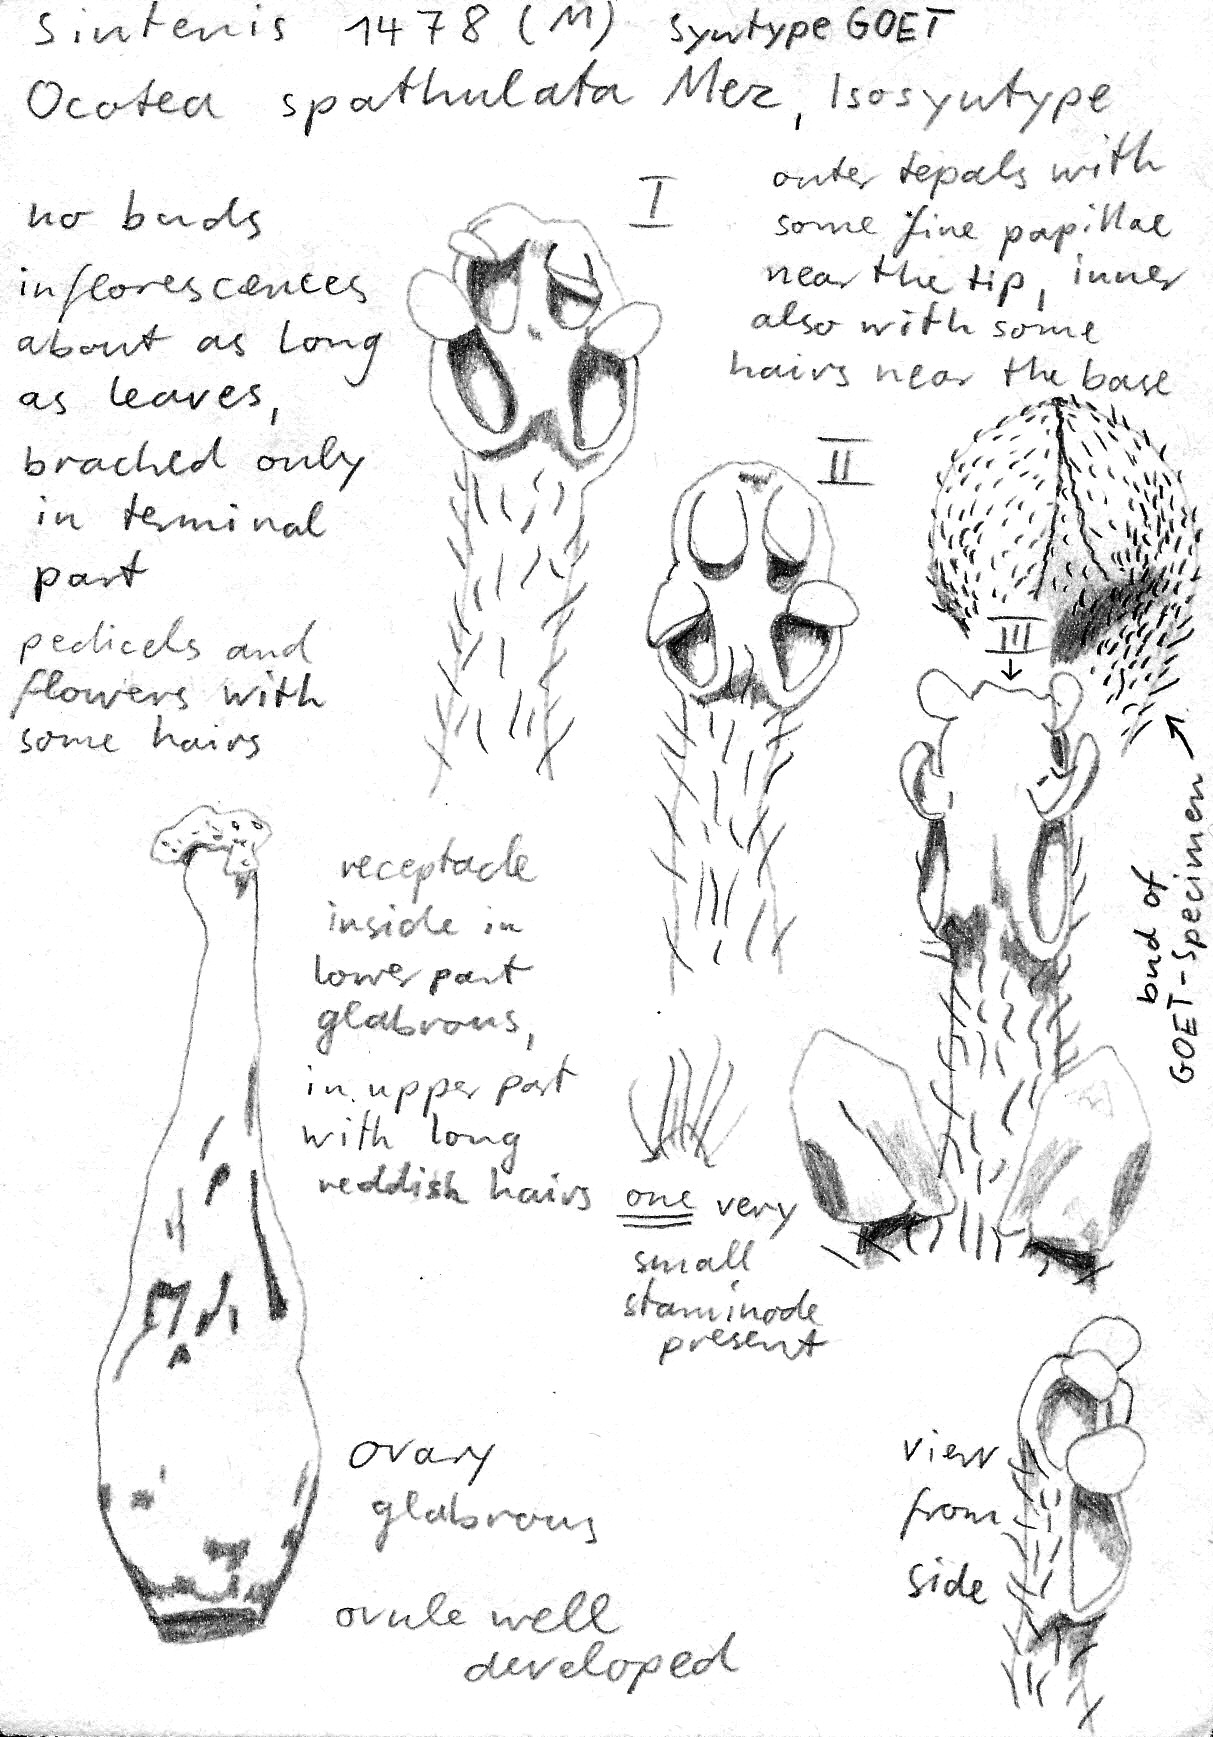 Sintenis 1478 (M) Syntype GOET
Ocotea spathulata Mez, Isosyntype
no buds
inflorescences
about as long
as leaves,
brached only
in terminal
part
pedicels and
flowers with
some hairs
I
outer tepals with
some fine papillae
near the tip, inner
also with some
hairs near the base
II
III
bud of
GOET-Specimen
receptacle
inside in
lower part
glabrous,
in upper part
with long
reddish hairs
one very
small
staminode
present
ovary
glabrous
ovule well
developed
view
from
side